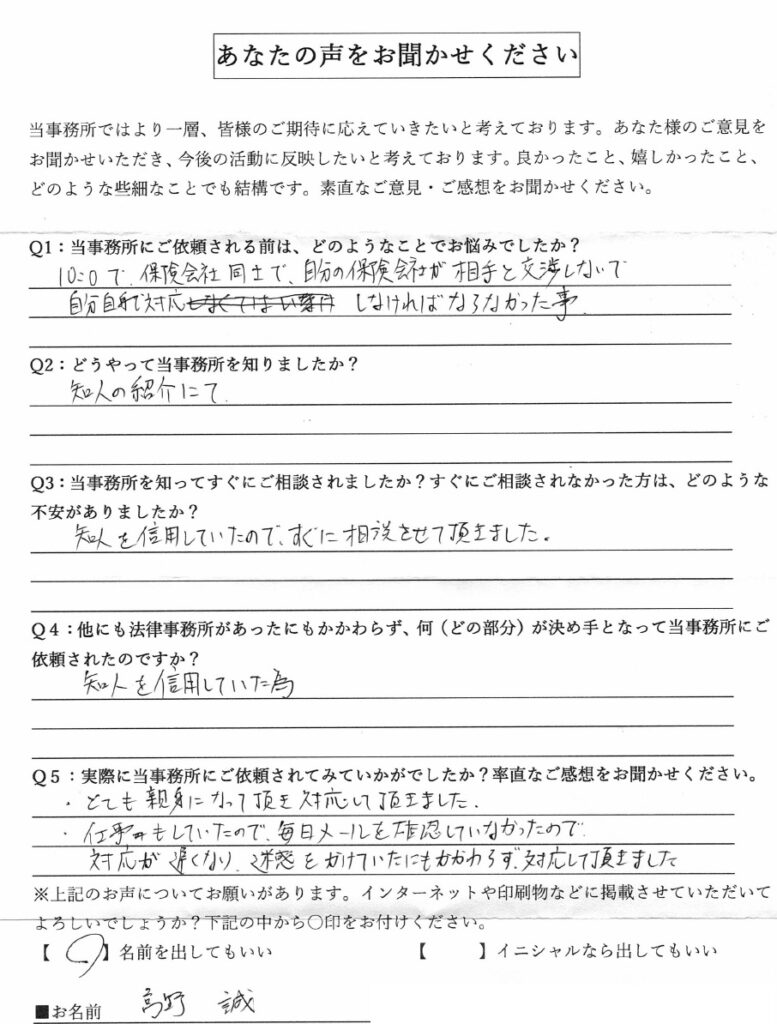 あなたの声をお聞かせください
当事務所ではより一層、皆様のご期待に応えていきたいと考えております。あなた様のご意見を
お聞かせいただき、今後の活動に反映したいと考えております。良かったこと、嬉しかったこと、
どのような些細なことでも結構です。素直なご意見・ご感想をお聞かせください。
Q1：当事務所にご依頼される前は、どのようなことでお悩みでしたか？
10:0で、保険会社同士で、自分の保険会社が相手と交渉しないで
自分自身で対応 しなければならなかった事.
Q2：どうやって当事務所を知りましたか？
知人の紹介にて.
Q3：当事務所を知ってすぐにご相談されましたか？すぐにご相談されなかった方は、どのような
不安がありましたか？
知人を信用していたので、すぐに相談させて頂きました。
Q４：他にも法律事務所があったにもかかわらず、何（どの部分）が決め手となって当事務所にご
依頼されたのですか？
知人を信用していた為
Q５：実際に当事務所にご依頼されてみていかがでしたか？率直なご感想をお聞かせください。
・とても親身になって頂き対応して頂きました.
・仕事もしていたので、毎日メールを確認していなかったので
対応が遅くなり、迷惑をかけていたにもかかわらず、対応して頂きました
※上記のお声についてお願いがあります。インターネットや印刷物などに掲載させていただいて
よろしいでしょうか？下記の中から〇印をお付けください。
【 〇 】名前を出してもいい 【 】イニシャルなら出してもいい
■お名前 高野 誠